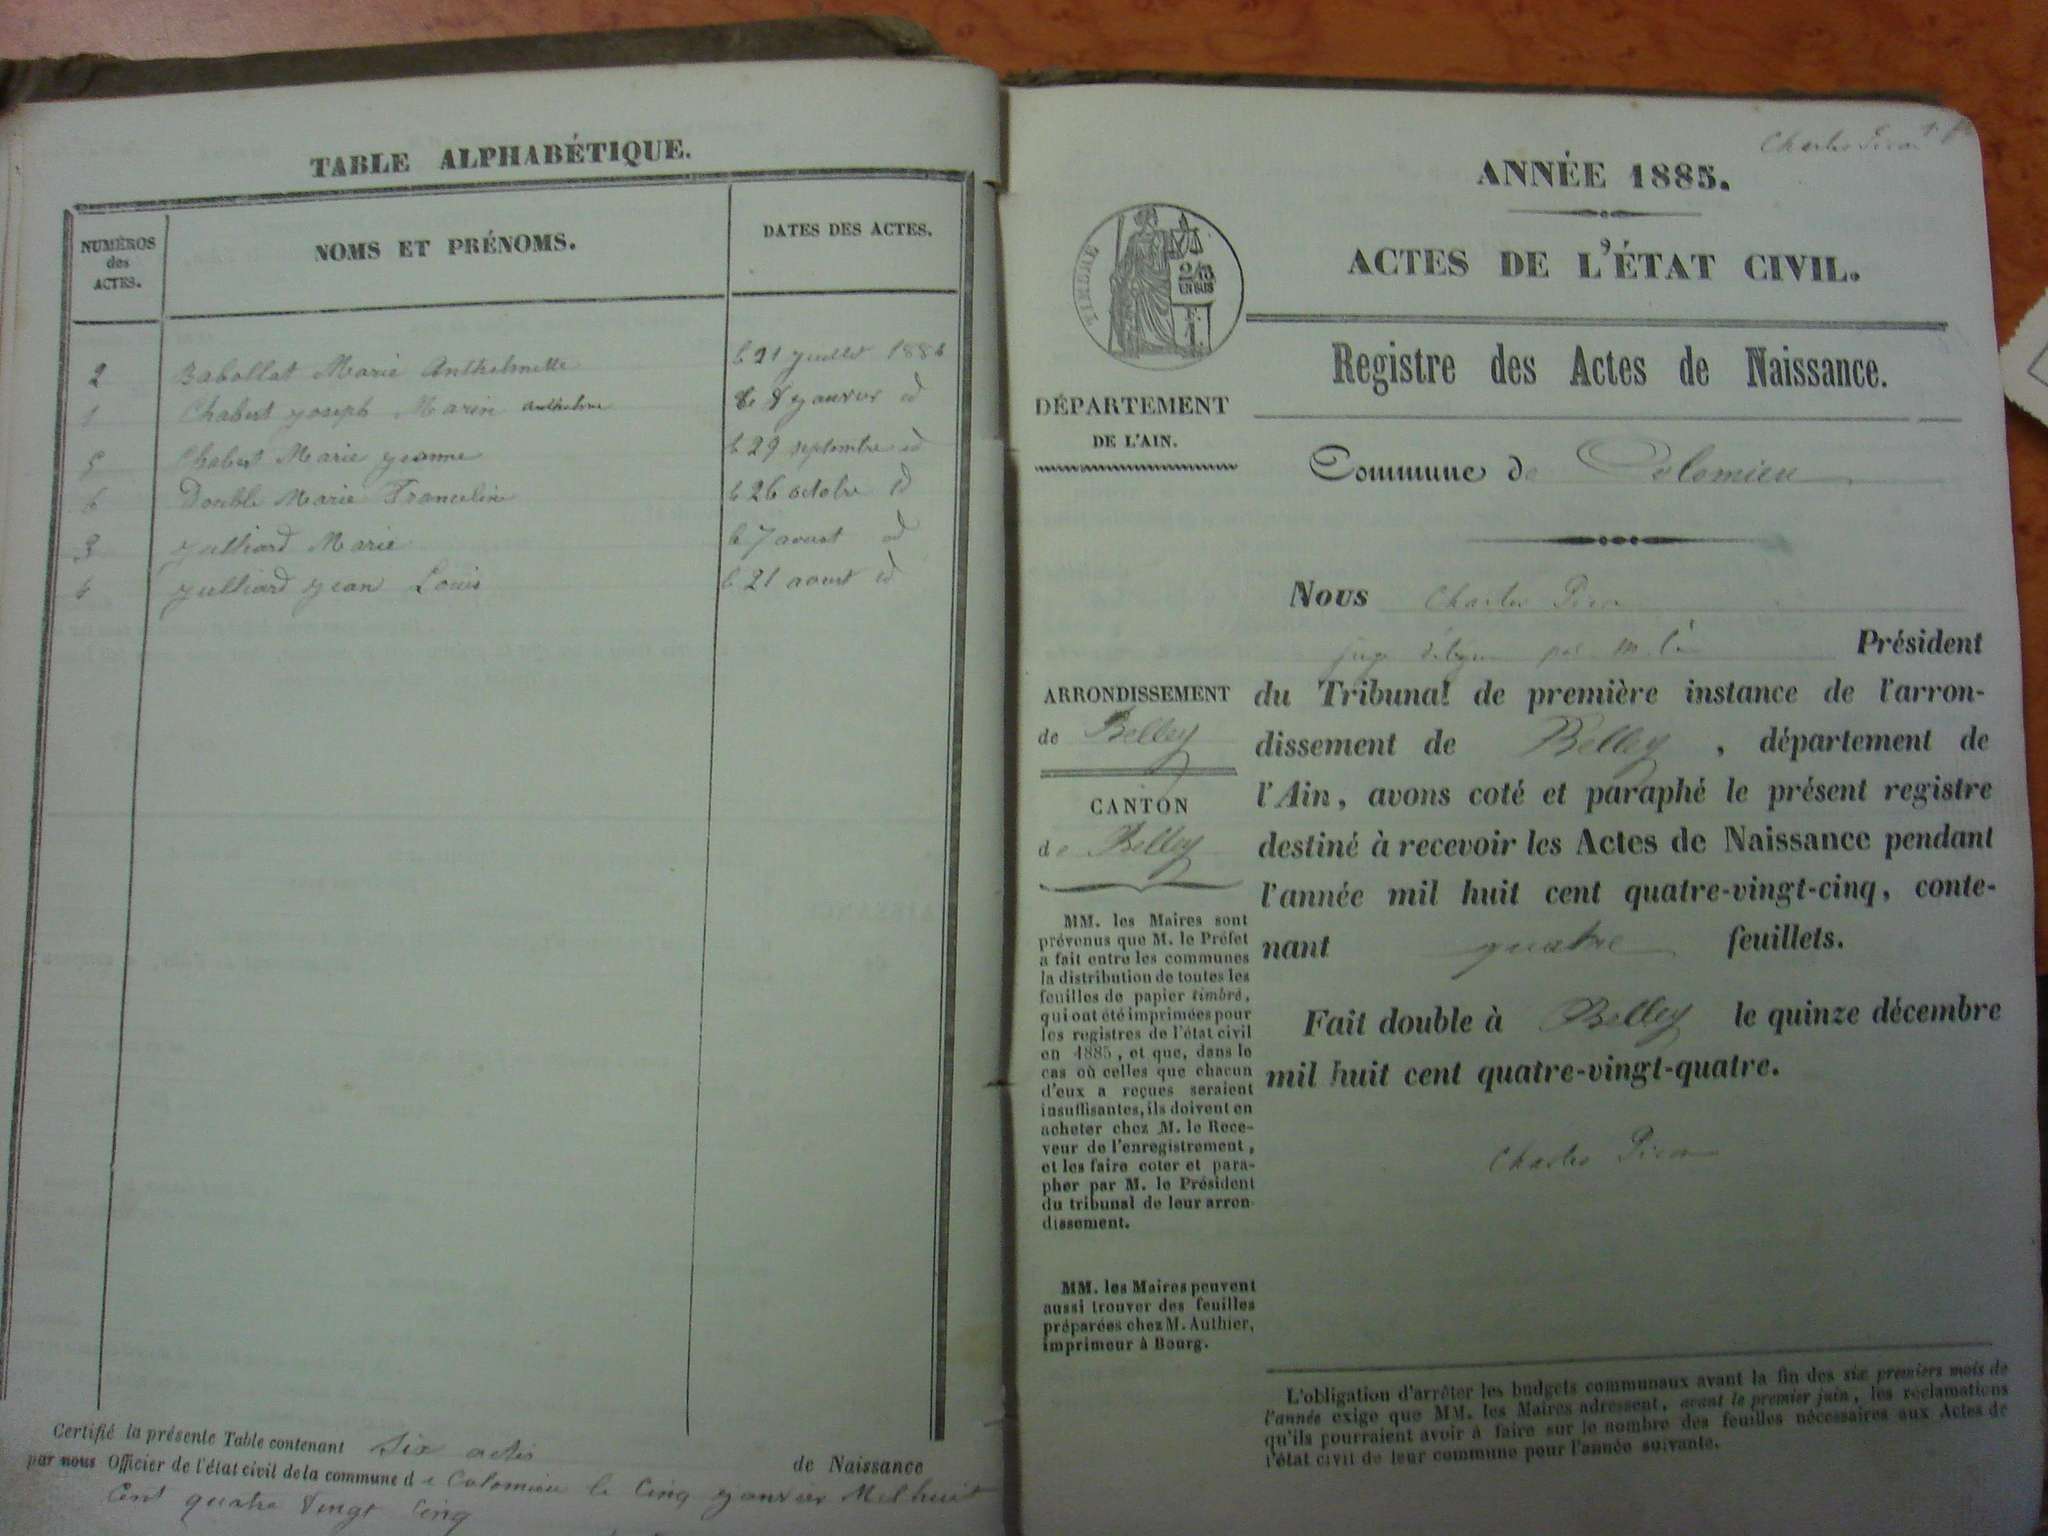 TABLE ALPHABÉTIQUE.
NUMÉROS
des
ACTES.
NOMS ET PRÉNOMS.
DATES DES ACTES.
2 Babollat Marie Anthelmette le 21 juillet 1884
1 Chabert joseph Marin anthelme le 8 janvier id
5 Chabert Marie jeanne le 29 septembre id
6 Double Marie Franceline le 26 octobre id
3 julliard Marie le 7 aoust id
4 julliard jean Louis le 21 aoust id
Certifié la présente Table contenant six actes de Naissance
par nous Officier de l'état civil de la commune de Colomieu le cinq janvier Mil huit
cent quatre vingt cinq
Charles Picon
ANNÉE 1885.
ACTES DE L'ÉTAT CIVIL.
TIMBRE
2/10
EN SUS
Registre des Actes de Naissance.
DÉPARTEMENT
DE L'AIN.
Commune de Colomieu
Nous Charles Picon
juge par Président
du Tribunal de première instance de l'arron-
dissement de Belley, département de
l'Ain, avons coté et paraphé le présent registre
destiné à recevoir les Actes de Naissance pendant
l'année mil huit cent quatre-vingt-cinq, conte-
nant quatre feuillets.
Fait double à Belley le quinze décembre
mil huit cent quatre-vingt-quatre.
Charles Picon
ARRONDISSEMENT
de Belley
CANTON
de Belley
MM. les Maires sont
prévenus que M. le Préfet
a fait entre les communes
la distribution de toutes les
feuilles de papier timbré,
qui ont été imprimées pour
les registres de l'état civil
en 1885, et que, dans le
cas où celles que chacun
d'eux a reçues seraient
insuffisantes, ils doivent en
acheter chez M. le Rece-
veur de l'enregistrement,
et les faire coter et para-
pher par M. le Président
du tribunal de leur arron-
dissement.
MM. les Maires peuvent
aussi trouver des feuilles
préparées chez M. Authier,
imprimeur à Bourg.
L'obligation d'arrêter les budgets communaux avant la fin des six premiers mois de
l'année exige que MM. les Maires adressent, avant le premier juin, les réclamations
qu'ils pourraient avoir à faire sur le nombre des feuilles nécessaires aux Actes de
l'état civil de leur commune pour l'année suivante.